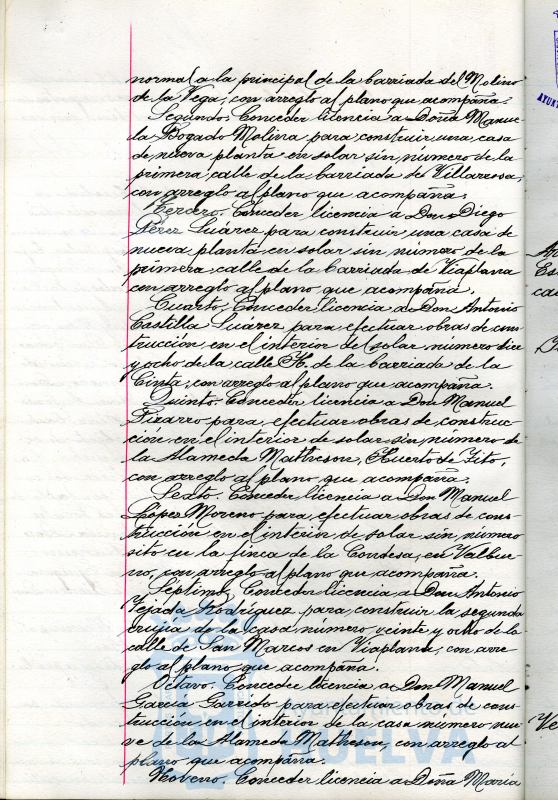 normal a la principal de la barriada del Molino
de la Vega, con arreglo al plano que acompaña.
Segundo. Conceder licencia a Doña Manue-
la Bogado Molina para construir una casa
de nueva planta en solar sin número de la
primera calle de la barriada de Villarrosa,
con arreglo al plano que acompaña.
Tercero. Conceder licencia a Don Diego
Pérez Suárez para construir una casa de
nueva planta en solar sin número de la
primera calle de la barriada de Viaplana
con arreglo al plano que acompaña.
Cuarto. Conceder licencia a Don Antonio
Castilla Suárez para efectuar obras de cons-
trucción en el interior del solar número diez
y ocho de la calle H. de la barriada de la
Cinta, con arreglo al plano que acompaña.
Quinto. Conceder licencia a Don Manuel
Pizarro para efectuar obras de construc-
ción en el interior de solar sin número de
la Alameda Matheson, Huerto de Tito,
con arreglo al plano que acompaña.
Sexto. Conceder licencia a Don Manuel
López Moreno para efectuar obras de cons-
trucción en el interior de solar sin número
sito en la finca de la Condesa, en Valbue-
no, con arreglo al plano que acompaña.
Septimo. Conceder licencia a Don Antonio
Tejada Rodríguez para construir la segunda
crujía de la casa número veinte y ocho de la
calle de San Marcos en Viaplana, con arre-
glo al plano que acompaña.
Octavo. Conceder licencia a Don Manuel
García Garrido para efectuar obras de cons-
trucción en el interior de la casa número nue-
ve de la Alameda Matheson, con arreglo al
plano que acompaña.
Noveno. Conceder licencia a Doña María
HUELVA